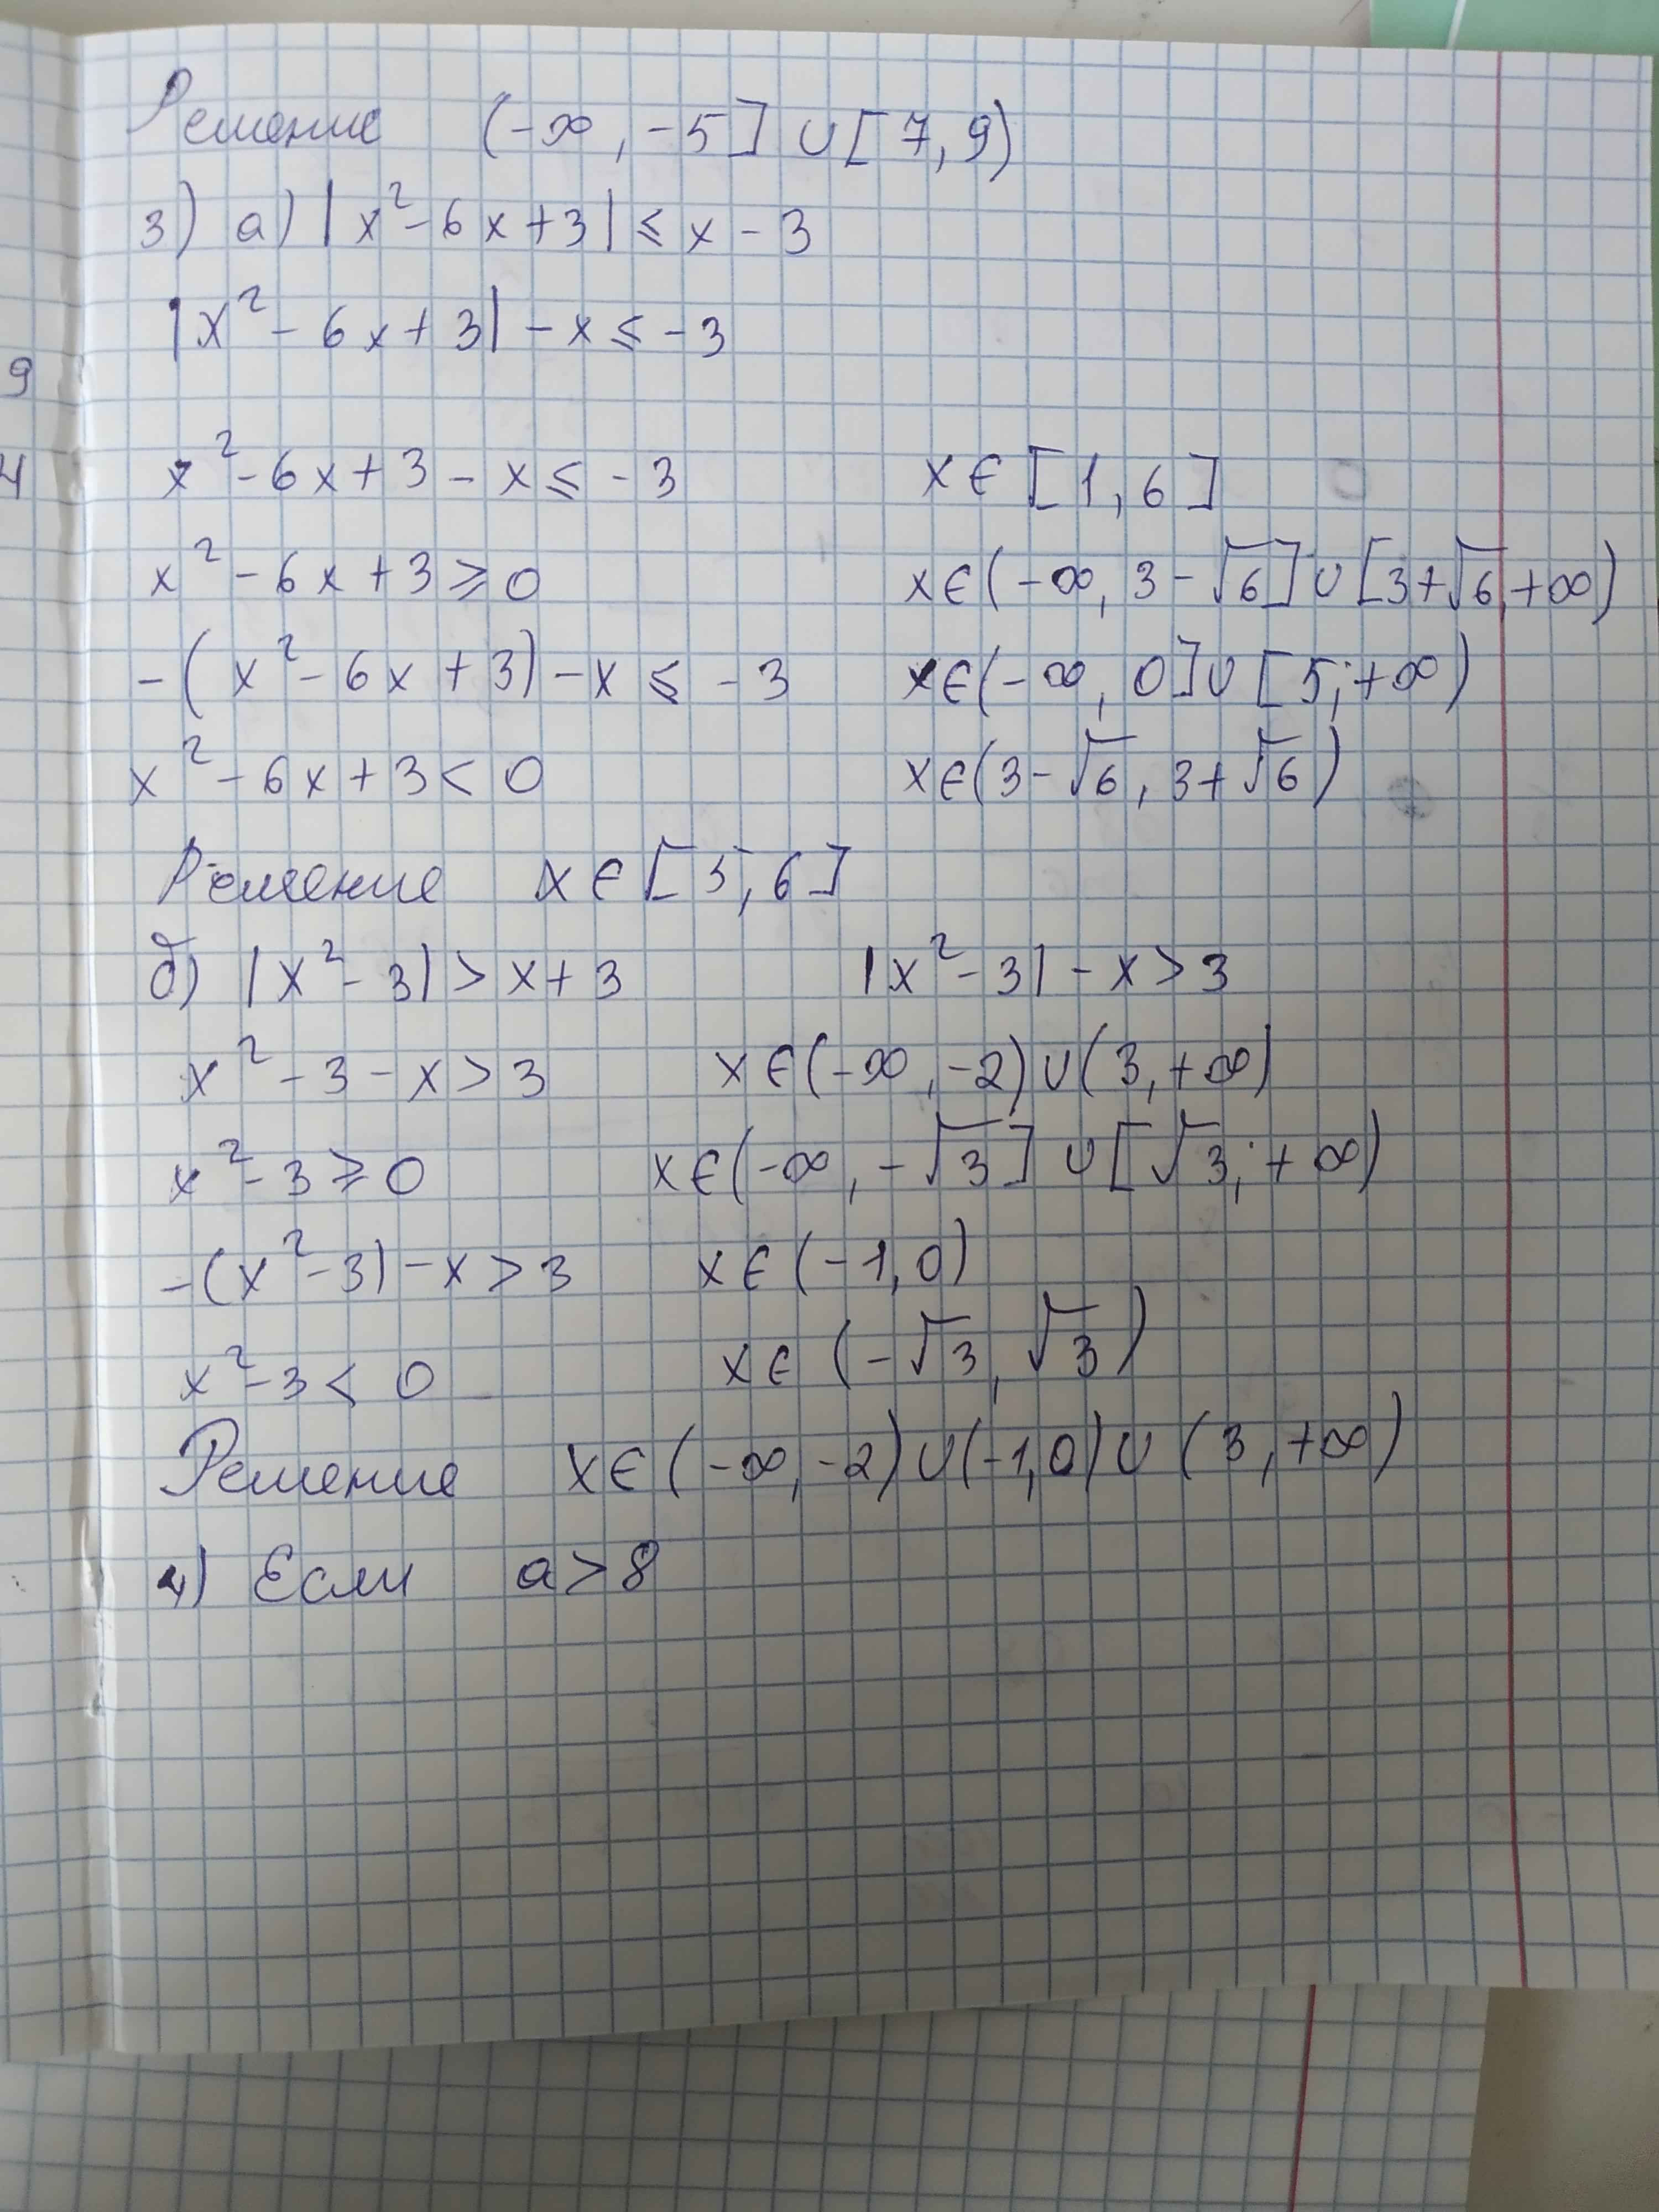 Решение (-∞, -5] ∪ [7, 9)
3) а) |x²-6x+3| ≤ x - 3
|x² - 6x + 3| - x ≤ -3
9
x² - 6x + 3 - x ≤ -3 x ∈ [1, 6]
4
x² - 6x + 3 ≥ 0 x ∈ (-∞, 3-√6] ∪ [3+√6, +∞)
-(x² - 6x + 3) - x ≤ -3 x ∈ (-∞, 0] ∪ [5; +∞)
x² - 6x + 3 < 0 x ∈ (3-√6, 3+√6)
Решение x ∈ [5, 6]
б) |x² - 3| > x + 3 |x² - 3| - x > 3
x² - 3 - x > 3 x ∈ (-∞, -2) ∪ (3, +∞)
x² - 3 ≥ 0 x ∈ (-∞, -√3] ∪ [√3; +∞)
-(x² - 3) - x > 3 x ∈ (-1, 0)
x² - 3 < 0 x ∈ (-√3, √3)
Решение x ∈ (-∞, -2) ∪ (-1, 0) ∪ (3, +∞)
4) Если a > 8